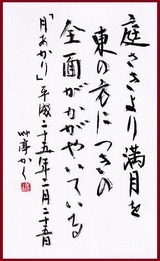 庭さきより満月を
東の方につきの
全面がかがやいている
「月あかり」平成二十五年一月二十五日
かく